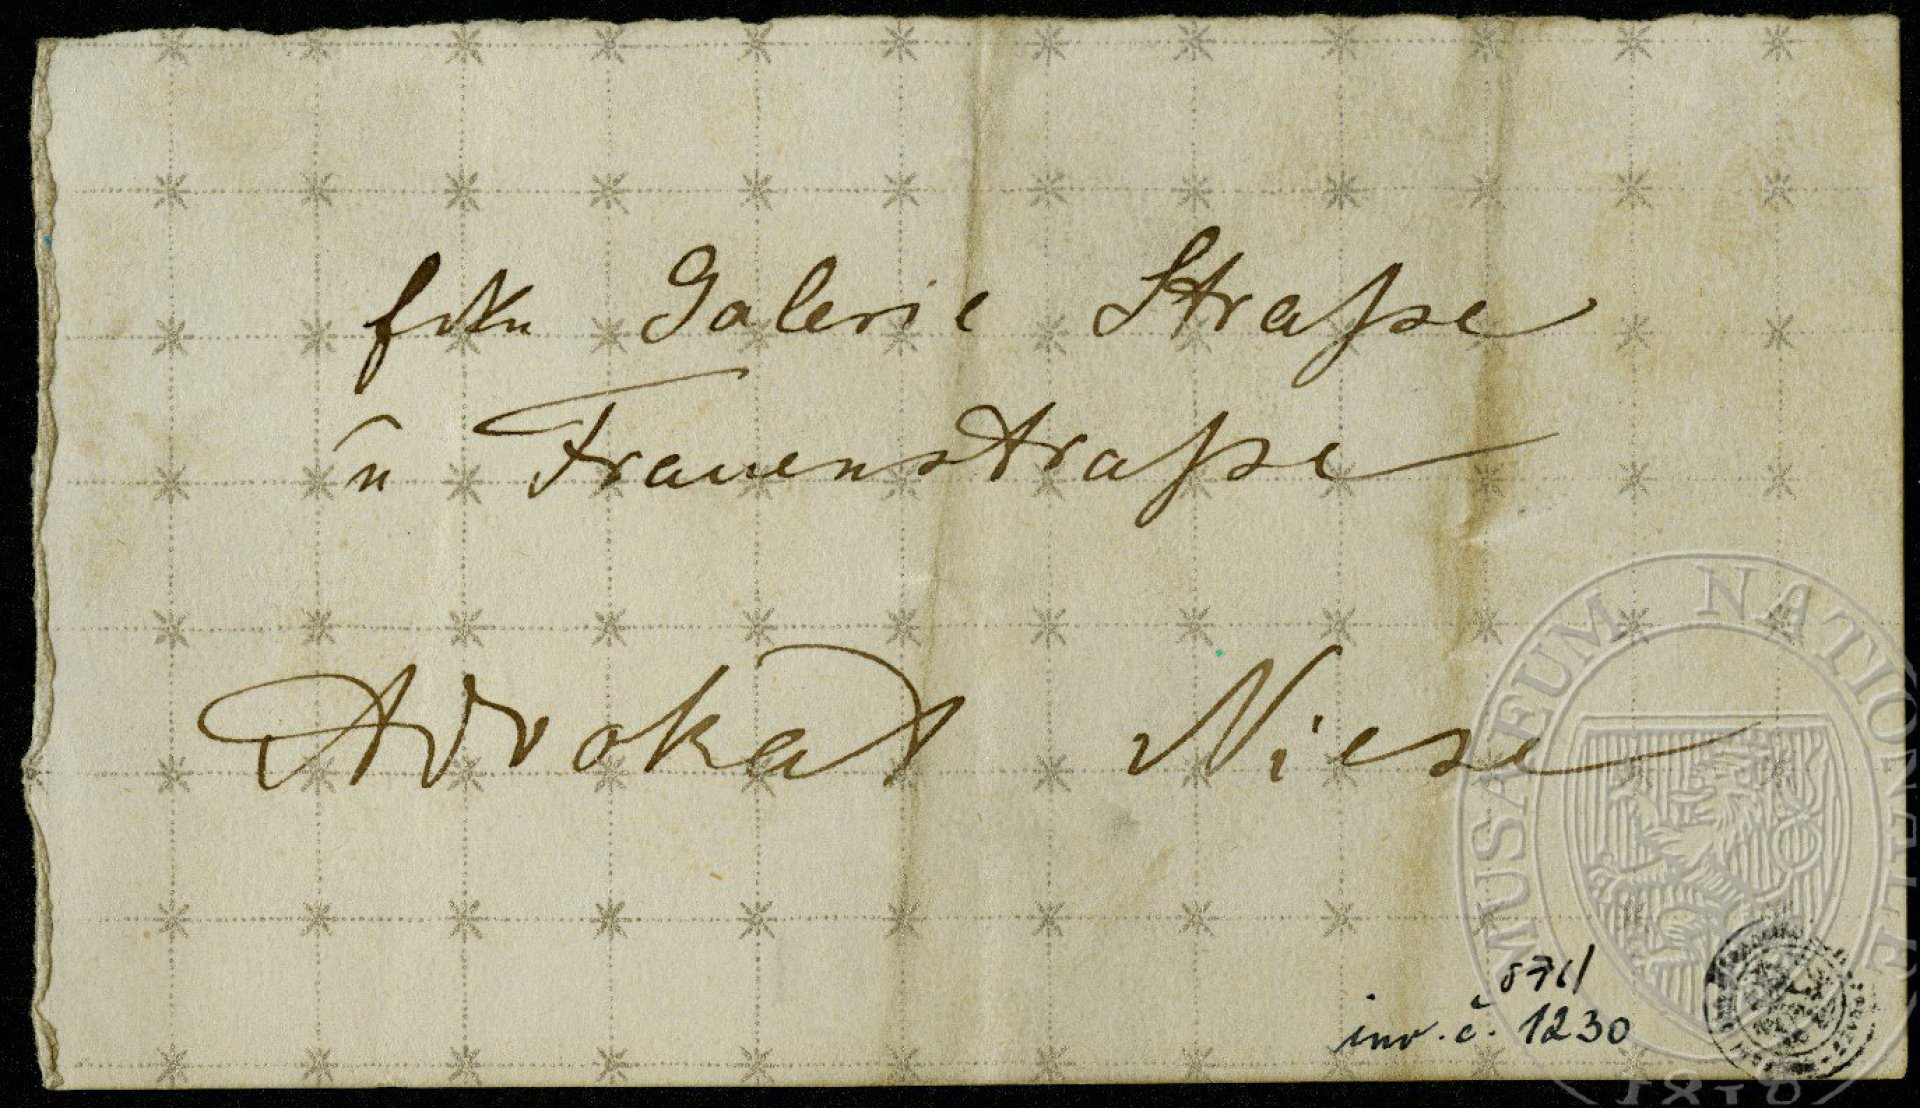 Galerie Straße
u Frauenstraße
Advokat Niese
inv. č. 1230
MUSAEUM NATIONALE
1818